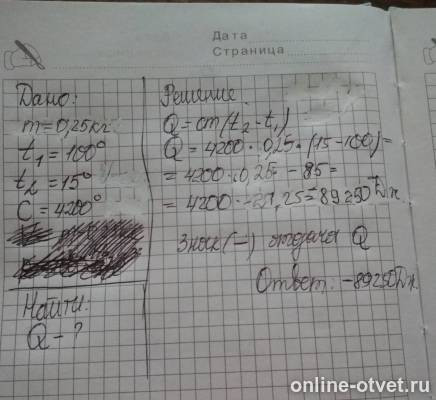 Дата
Страница
Дано:
m=0,25кг
t₁=100°
t₂=15°
C=4200°
Найти:
Q-?
Решение
Q=cm(t₂-t₁)
Q=4200·0,25·(15-100)=
=4200·0,25·-85=
=4200·-21,25=89250Дж.
Знак(-) отдача Q
Ответ:-89250Дж.
online-otvet.ru